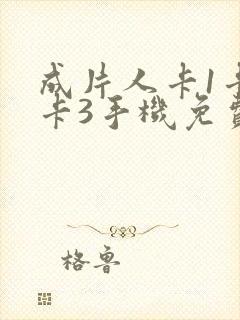 成片人卡1卡
卡3手機免費
格鲁